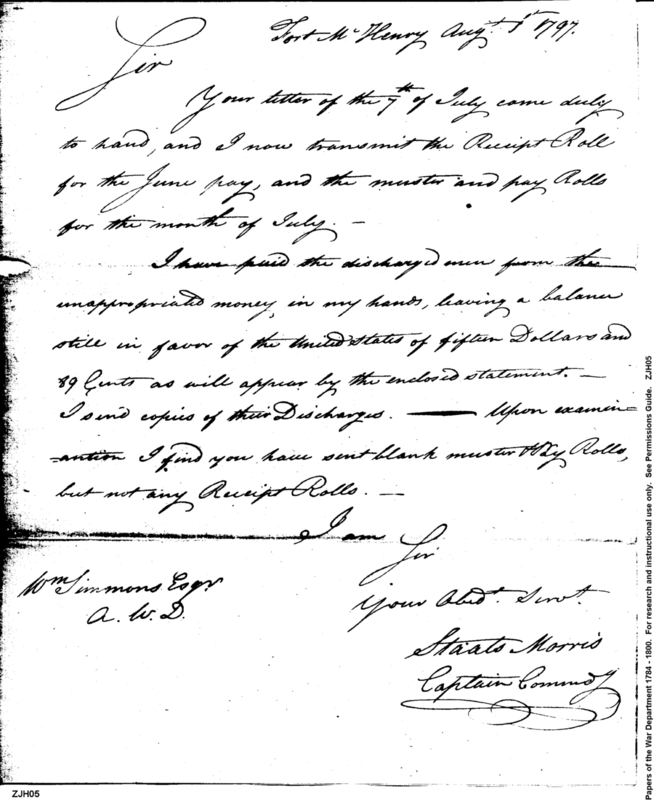 Fort McHenry Augt. 1st 1797.
Sir
Your letter of the 7th of July came duly
to hand, and I now transmit the Receipt Roll
for the June pay, and the muster and pay Rolls
for the month of July. —
I have paid the discharged men from the
unappropriated money, in my hands, leaving a balance
still in favor of the United States of fifteen Dollars and
89 Cents as will appear by the enclosed statement. —
I send copies of their Discharges. — Upon examin-
-ation I find you have sent blank muster & Pay Rolls,
but not any Receipt Rolls. —
I am Sir
Your Obedt. Servt.
Staats Morris
Captain Commdg
Wm Simmons Esqr
A. W. D.
Papers of the War Department 1784 - 1800. For research and instructional use only. See Permissions Guide. ZJH05
ZJH05